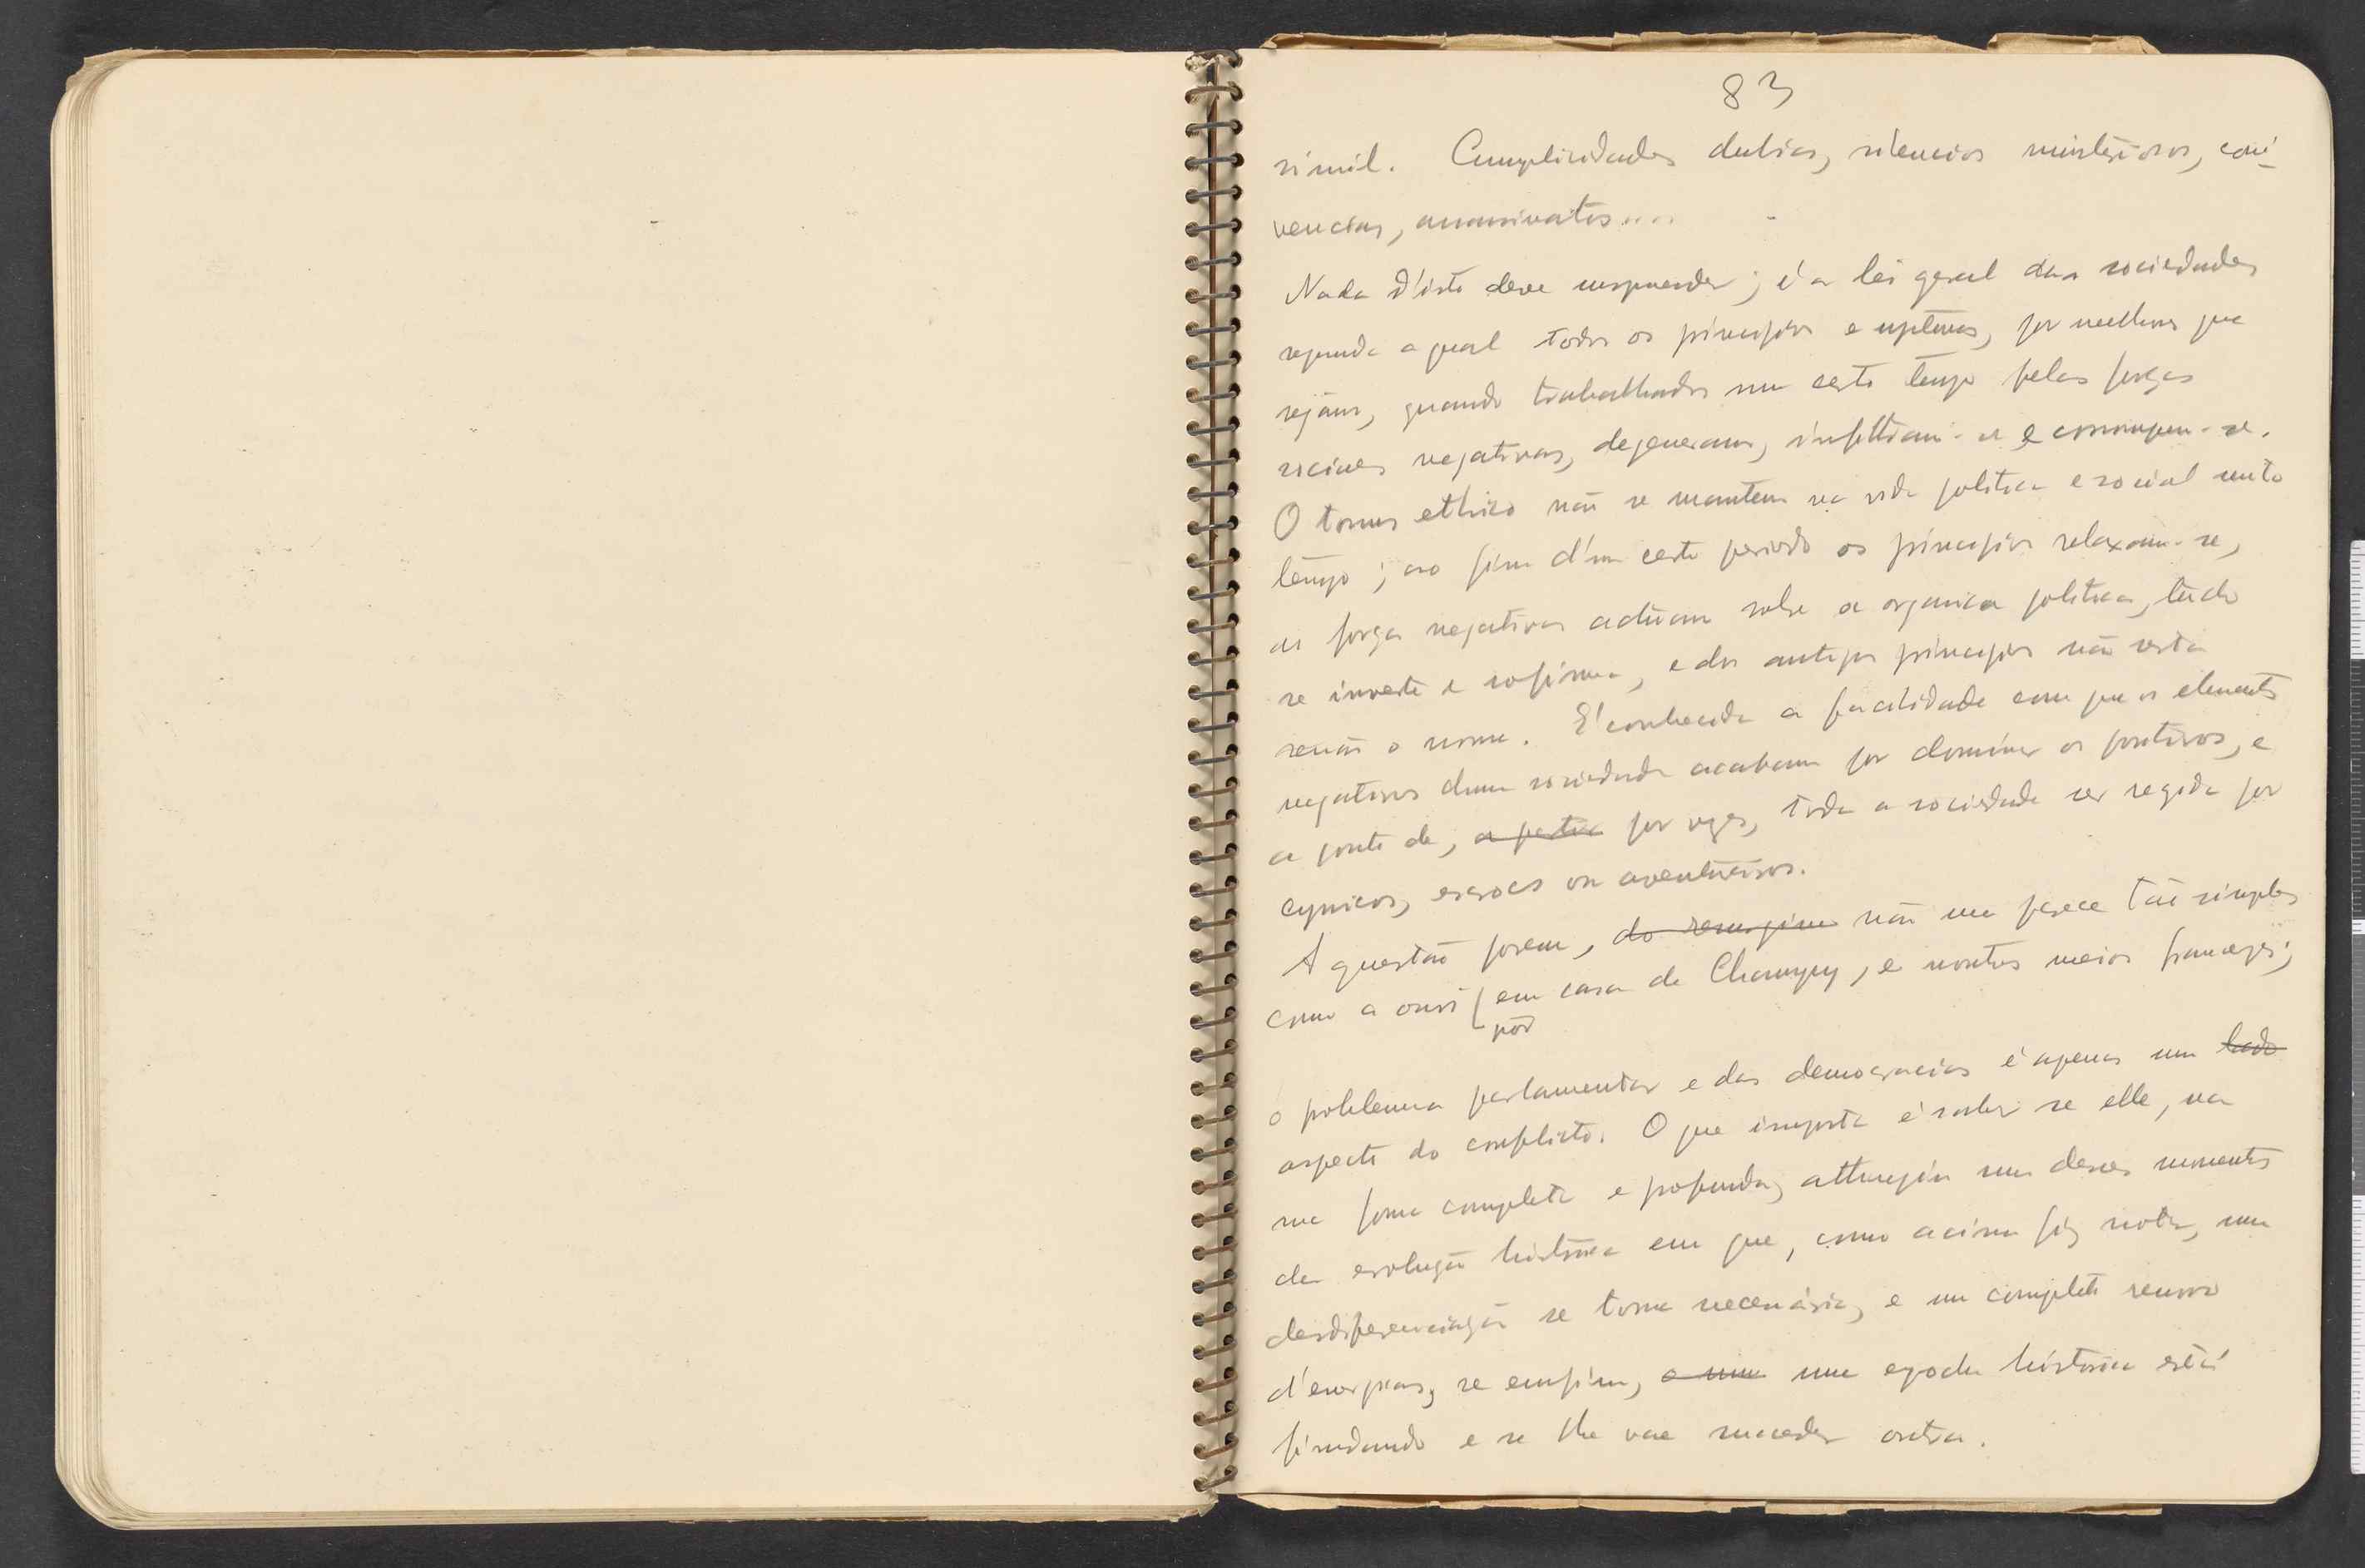 83
simil. Cumplicidades dubias, silencios misteriosos, coni-
vencias, assassinatos....
Nada d'isto deve surprender; é a lei geral das sociedades
segundo a qual todos os principios e systemas, por melhores que
sejam, quando trabalhados um certo tempo pelas forças
sociaes negativas, degeneram, infiltram-se e corrompem-se.
O tonus ethico não se mantem na vida politica e social muito
tempo; ao fim d'um certo periodo os principios relaxam-se,
as forças negativas actuam sobre a organica politica, tudo
se inverte e sofisma, e dos antigos principios não resta
senão o nome. É conhecida a facilidade com que os elementos
negativos duma sociedade acabam por dominar os positivos, e
a ponto de, por vezes, toda a sociedade ser regida por
cynicos, escrocs ou aventureiros.
A questão porem, não me parece tão simples
como a ouvi pôr em casa de Champy, e noutros meios francezes;
o problema parlamentar e das democracias é apenas um lado
aspecto do conflicto. O que importa é saber se elle, na
sua forma completa e profunda, attingiu um desses momentos
da evolução historica em que, como acima fiz notar, uma
desdiferenciação se torna necessária, e um completo renovo
d'energias, se emfim, e uma uma epocha historica está
findando e se lhe vae succeder outra.